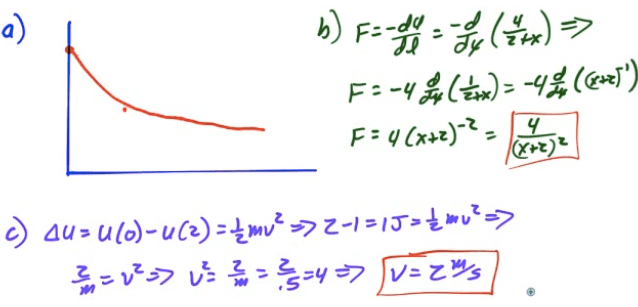 a)
b) F = -dU/dl = -d/dx (4/2+x) ⇒
F = -4 d/dx (1/2+x) = -4 d/dx ((x+2)^-1)
F = 4(x+2)^-2 = 4/(x+2)^2
c) ΔU = U(0) - U(2) = 1/2 mv^2 ⇒ 2-1 = 1J = 1/2 mv^2 ⇒
2/m = v^2 ⇒ v^2 = 2/m = 2/.5 = 4 ⇒ V = 2 m/s